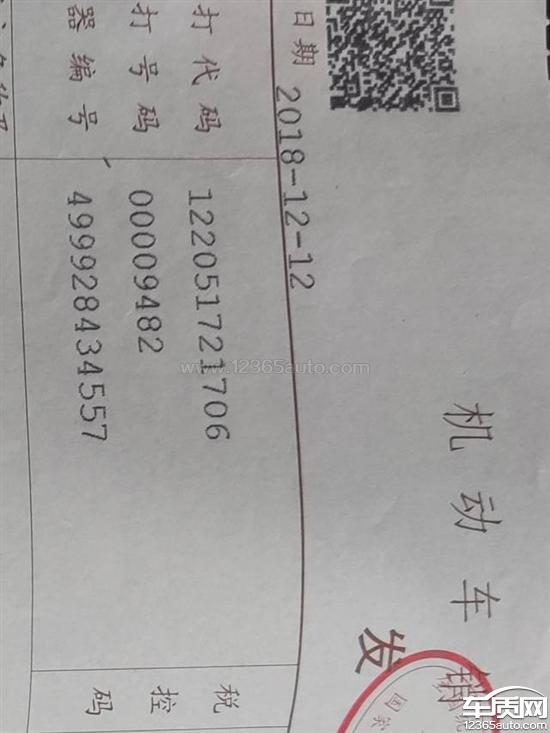 机动车销
发
日期 2018-12-12
打代码 122051721706
打号码 00009482
器编号 499928434557
税
控
码
www.12365auto.com
车质网
12365auto.com